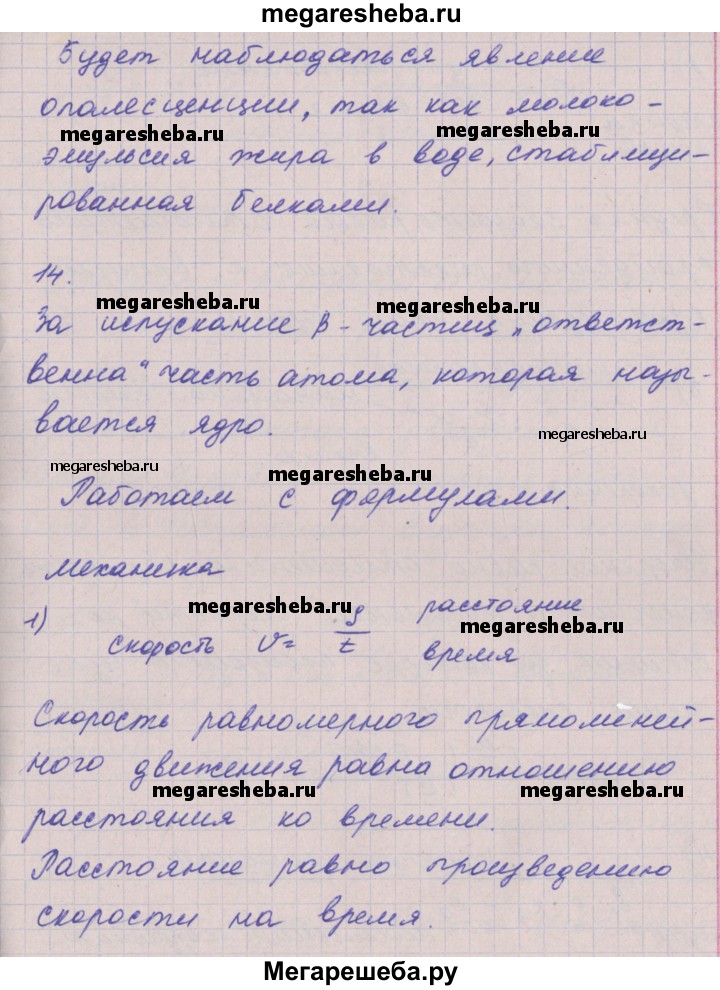 megaresheba.ru
Будет наблюдаться явление
опалесценции, так как молоко -
megaresheba.ru megaresheba.ru
эмульсия жира в воде, стабилизи-
рованная белками.
14.
megaresheba.ru megaresheba.ru
За испускание β - частиц „ответст-
венна“ часть атома, которая назы-
вается ядро.
megaresheba.ru
megaresheba.ru megaresheba.ru
Работаем с формулами.
механика
1) megaresheba.ru S расстояние
скорость V = t время
megaresheba.ru
Скорость равномерного прямолиней-
ного движения равна отношению
megaresheba.ru megaresheba.ru
расстояния ко времени.
Расстояние равно произведению
скорости на время.
Мегарешеба.ру